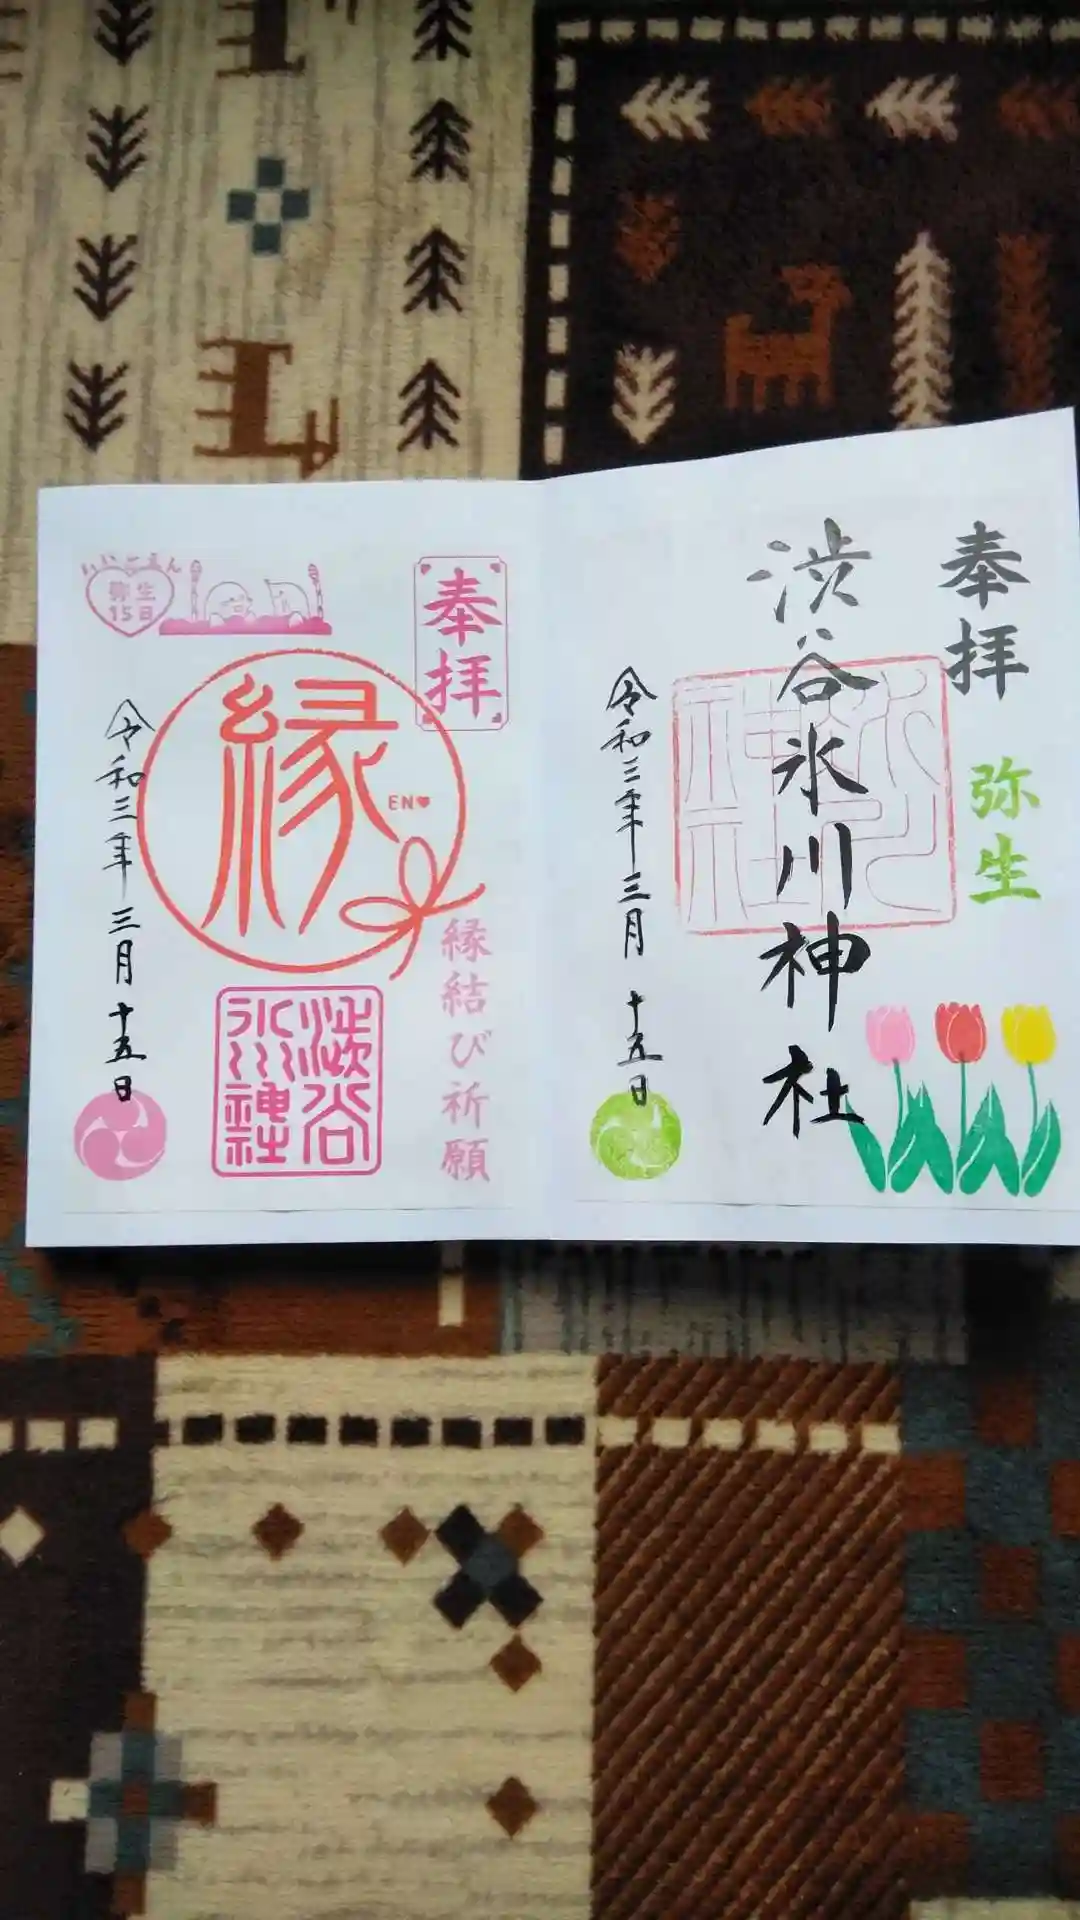 奉拝
弥生
渋谷氷川神社
氷川
神社
令和三年三月十五日
奉拝
縁結び祈願
縁
EN
渋谷
氷川神社
いいごえん
弥生
15日
令和三年三月十五日